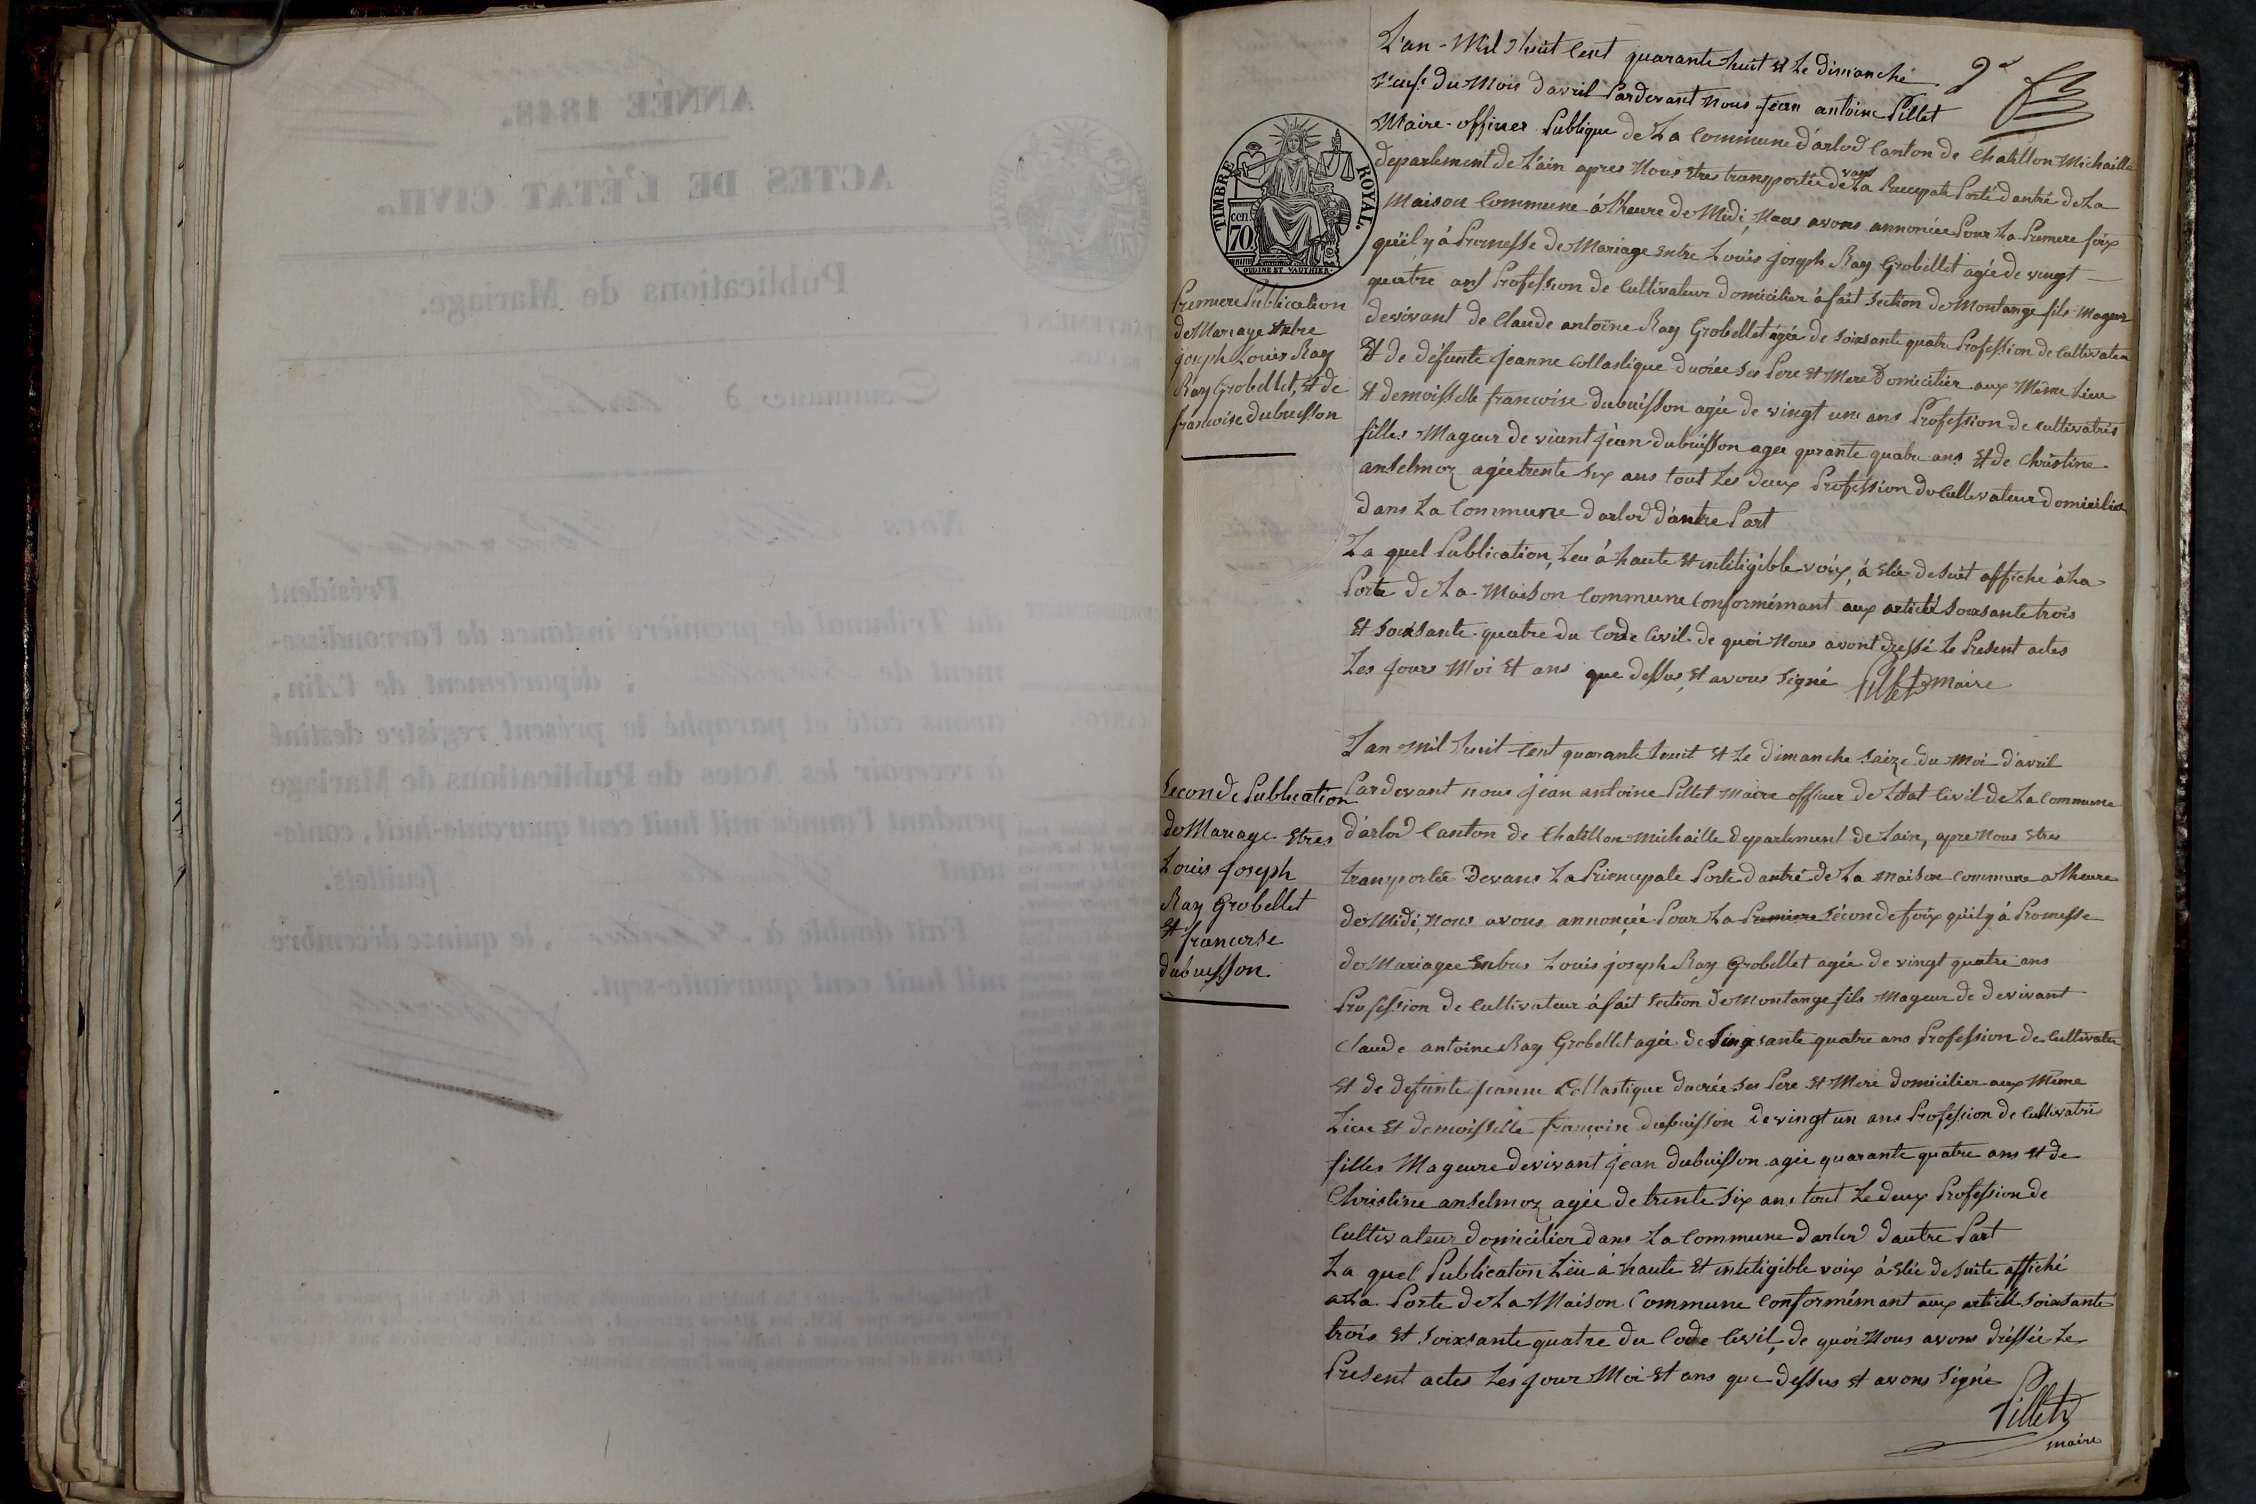 L'an - Mil huit Cent quarante huit et Le dimanche
neuf du Mois d'avril Pardevant Nous jean antoine Pillet
Maire - officier Publique de La Commune d'arlod Canton de Chatillon Michaille
departement de L'ain apres Nous etres transportée devans La Principale Porte d'antré de La
Maison Commune á l'heure de Midi, Nous avons annoncée Pour La Premiere foix
quil y á Promesse de Mariage entre Louis joseph Ray Grobellet agée de vingt
quatre ans Profession de Cultivateur domicilier á fait Section de Montange fils Mageur
devivant de Claude antoine Ray Grobellet agée de soixsante quatre Profession de Cultivateur
Et de défunte jeanne Collastique ducrée Ses Pere et Mere Domicilier aux Même Lieu
Et demoisselle francoise dubuisson agée de vingt une ans Profession de cultivatris
filles Mageur de vivant jean dubuisson agee quarante quatre ans Et de Christine
anselmoz agée trente Six ans tout Les deux Profession de Cultivateur domicilier
dans La Commune d'arlod d'autre Part
La quel Publication, Leu á haute et inteligible voix, á etée de suit affiché á La
Porte de La Maison Commune Conformémant aux articles soixsante trois
Et soixsante quatre du Code Civil de quoi Nous avont dressé Le Present actes
Les jours Moi Et ans que dessus, et avons Signé Pillet maire
Premiere Publication
de Mariage entre
joseph Louis Ray
Ray Grobellet, et de
francoise dubuisson
TIMBRE ROYAL.
cen. 70
OUDINE ET VAUTHIER.
L'an Mil huit Cent quarante huit Et Le dimanche Saize du Moi d'avril
Pardevant nous jean antoine Pillet maire officier de L'état Civil de La Commune
d'arlod Canton de Chatillon Michaille departement de Lain, apre Nous etres
transportée Devans La Principale Porte d'antré de La maison Commune a l'heure
de Midi, Nous avons annonçée Pour La Premiere sécondefoix quil y á Promesse
de Mariagee entres Louis joseph Ray Grobellet agée de vingt quatre ans
Profession de Cultivateur á fait Section de Montange fils Mageur de devivant
Claude antoine Ray Grobellet agée de soixsante quatre ans Profession de Cultivateur
et de defunte jeanne Collastique ducrée Ses Pere et Mere domicilier aux Même
Lieu Et demoisselle françoise dubuisson de vingt un ans Profession de Cultivatris
filles Mageure devivant jean dubuisson agée quarante quatre ans et de
Christine anselmoz agée de trente Six ans tout Le deux Profession de
Cultivateur domicilier dans La Commune d'arlod d'autre Part
La quel Publicaton Leü á haute Et inteligible voix á etée de suite affiché
a La Porte de La Maison Commune Conformémant aux article soixsante
trois et soixsante quatre du Code Civil, de quoi Nous avons dréssée Le
Present actes Les jour Moi et ans que dessus et avons Signé
Pillet
maire
Seconde Publication
de Mariage Etres
Louis joseph
Ray Grobellet
Et francoise
dubuisson.